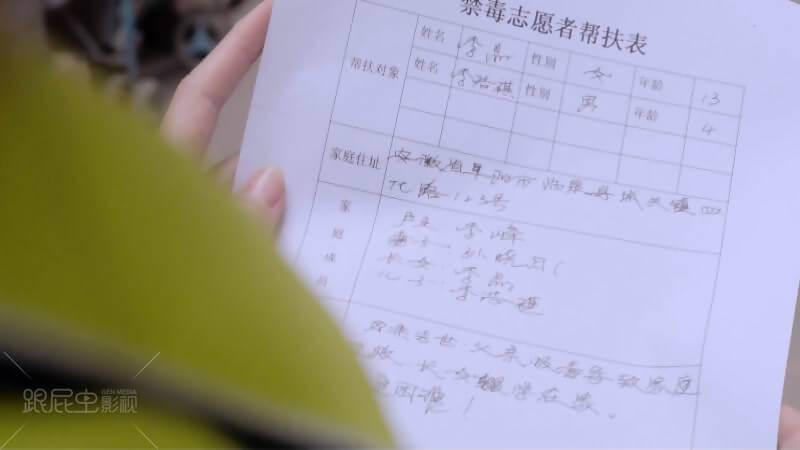 禁毒志愿者帮扶表
帮扶对象 姓名 李晶 性别 女 年龄 13
姓名 李浩祺 性别 男 年龄 4
家庭住址 安徽省阜阳市临泉县城关镇四
化路123号
家庭成员 户主 李峰
妻子 孙晓
长女 李晶
儿子 李浩祺
去世 父亲吸毒导致家庭
长女辍学在家。
困难！
跟屁虫影视
GEN MEDIA